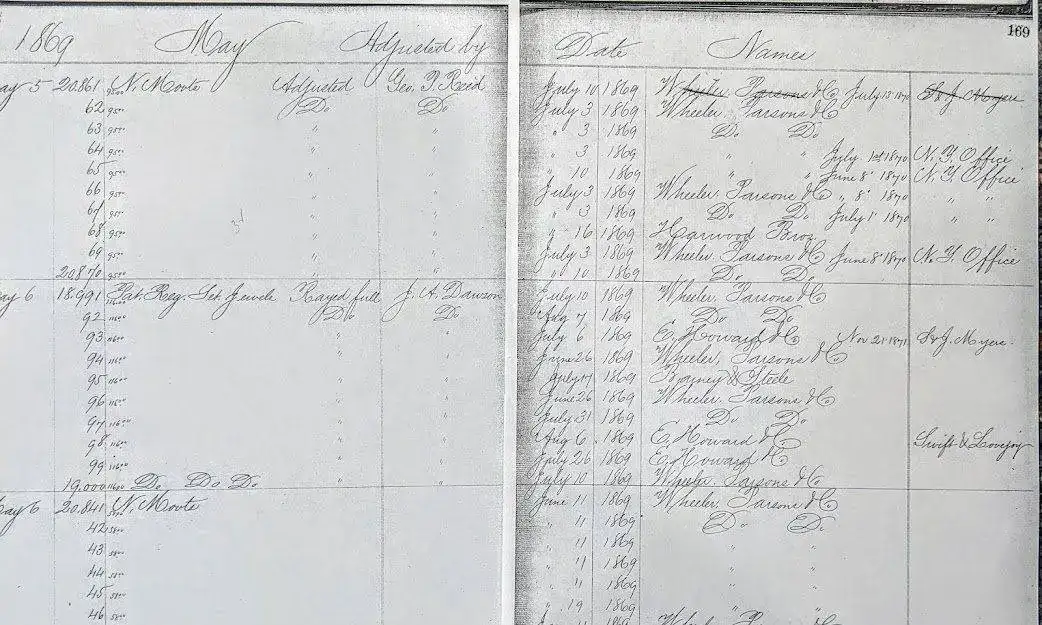 169
1869 May Adjusted by Date Names
May 5 20.861 9500 N. Movts Adjusted Geo. P. Reed July 10 1869 Wheeler, Parsons & Co July 13 1870 S & J. Myers
62 9500 Do Do July 3 1869 Wheeler, Parsons & Co
63 9500 " " " 3 1869 Do Do
64 9500 " " " 3 1869 " " July 1st 1870 N. Y. Office
65 9500 " " " 10 1869 " " June 8" 1870 N. Y. Office
66 9500 " " July 3 1869 Wheeler, Parsons & Co " 8" 1870 " "
67 9500 " " " 3 1869 Do Do July 1" 1870 " "
68 9500 " " " 16 1869 Harwood Bros
69 9500 " " July 3 1869 Wheeler, Parsons & Co June 8" 1870 N. Y. Office
20.870 9500 " " " 10 1869 Do Do
May 6 18.991 11600 Pat. Reg. Set Jewels Rayed full J. A. Dawson July 10 1869 Wheeler, Parsons & Co
92 11600 Do Do Aug 7 1869 Do Do
93 11600 " " July 6 1869 E. Howard & Co Nov 21 1871 S & J. Myers
94 11600 " " June 26 1869 Wheeler, Parsons & Co
95 11600 " " July 17 1869 & Steele
96 11600 " " June 26 1869 Wheeler, Parsons & Co
97 11600 " " July 31 1869 Do Do
98 11600 " " Aug 6 1869 E. Howard & Co Swift & Lovejoy
99 11600 " " July 26 1869 E. Howard & Co
19.000 11600 Do Do Do " " July 10 1869 Wheeler, Parsons & Co
May 6 20.841 5800 N. Movts June 11 1869 Wheeler, Parsons & Co
42 5800 " 11 1869 Do Do
43 5800 " 11 1869 " "
44 5800 " 11 1869 " "
45 5800 " 11 1869 " "
46 5800 " 19 1869 " "